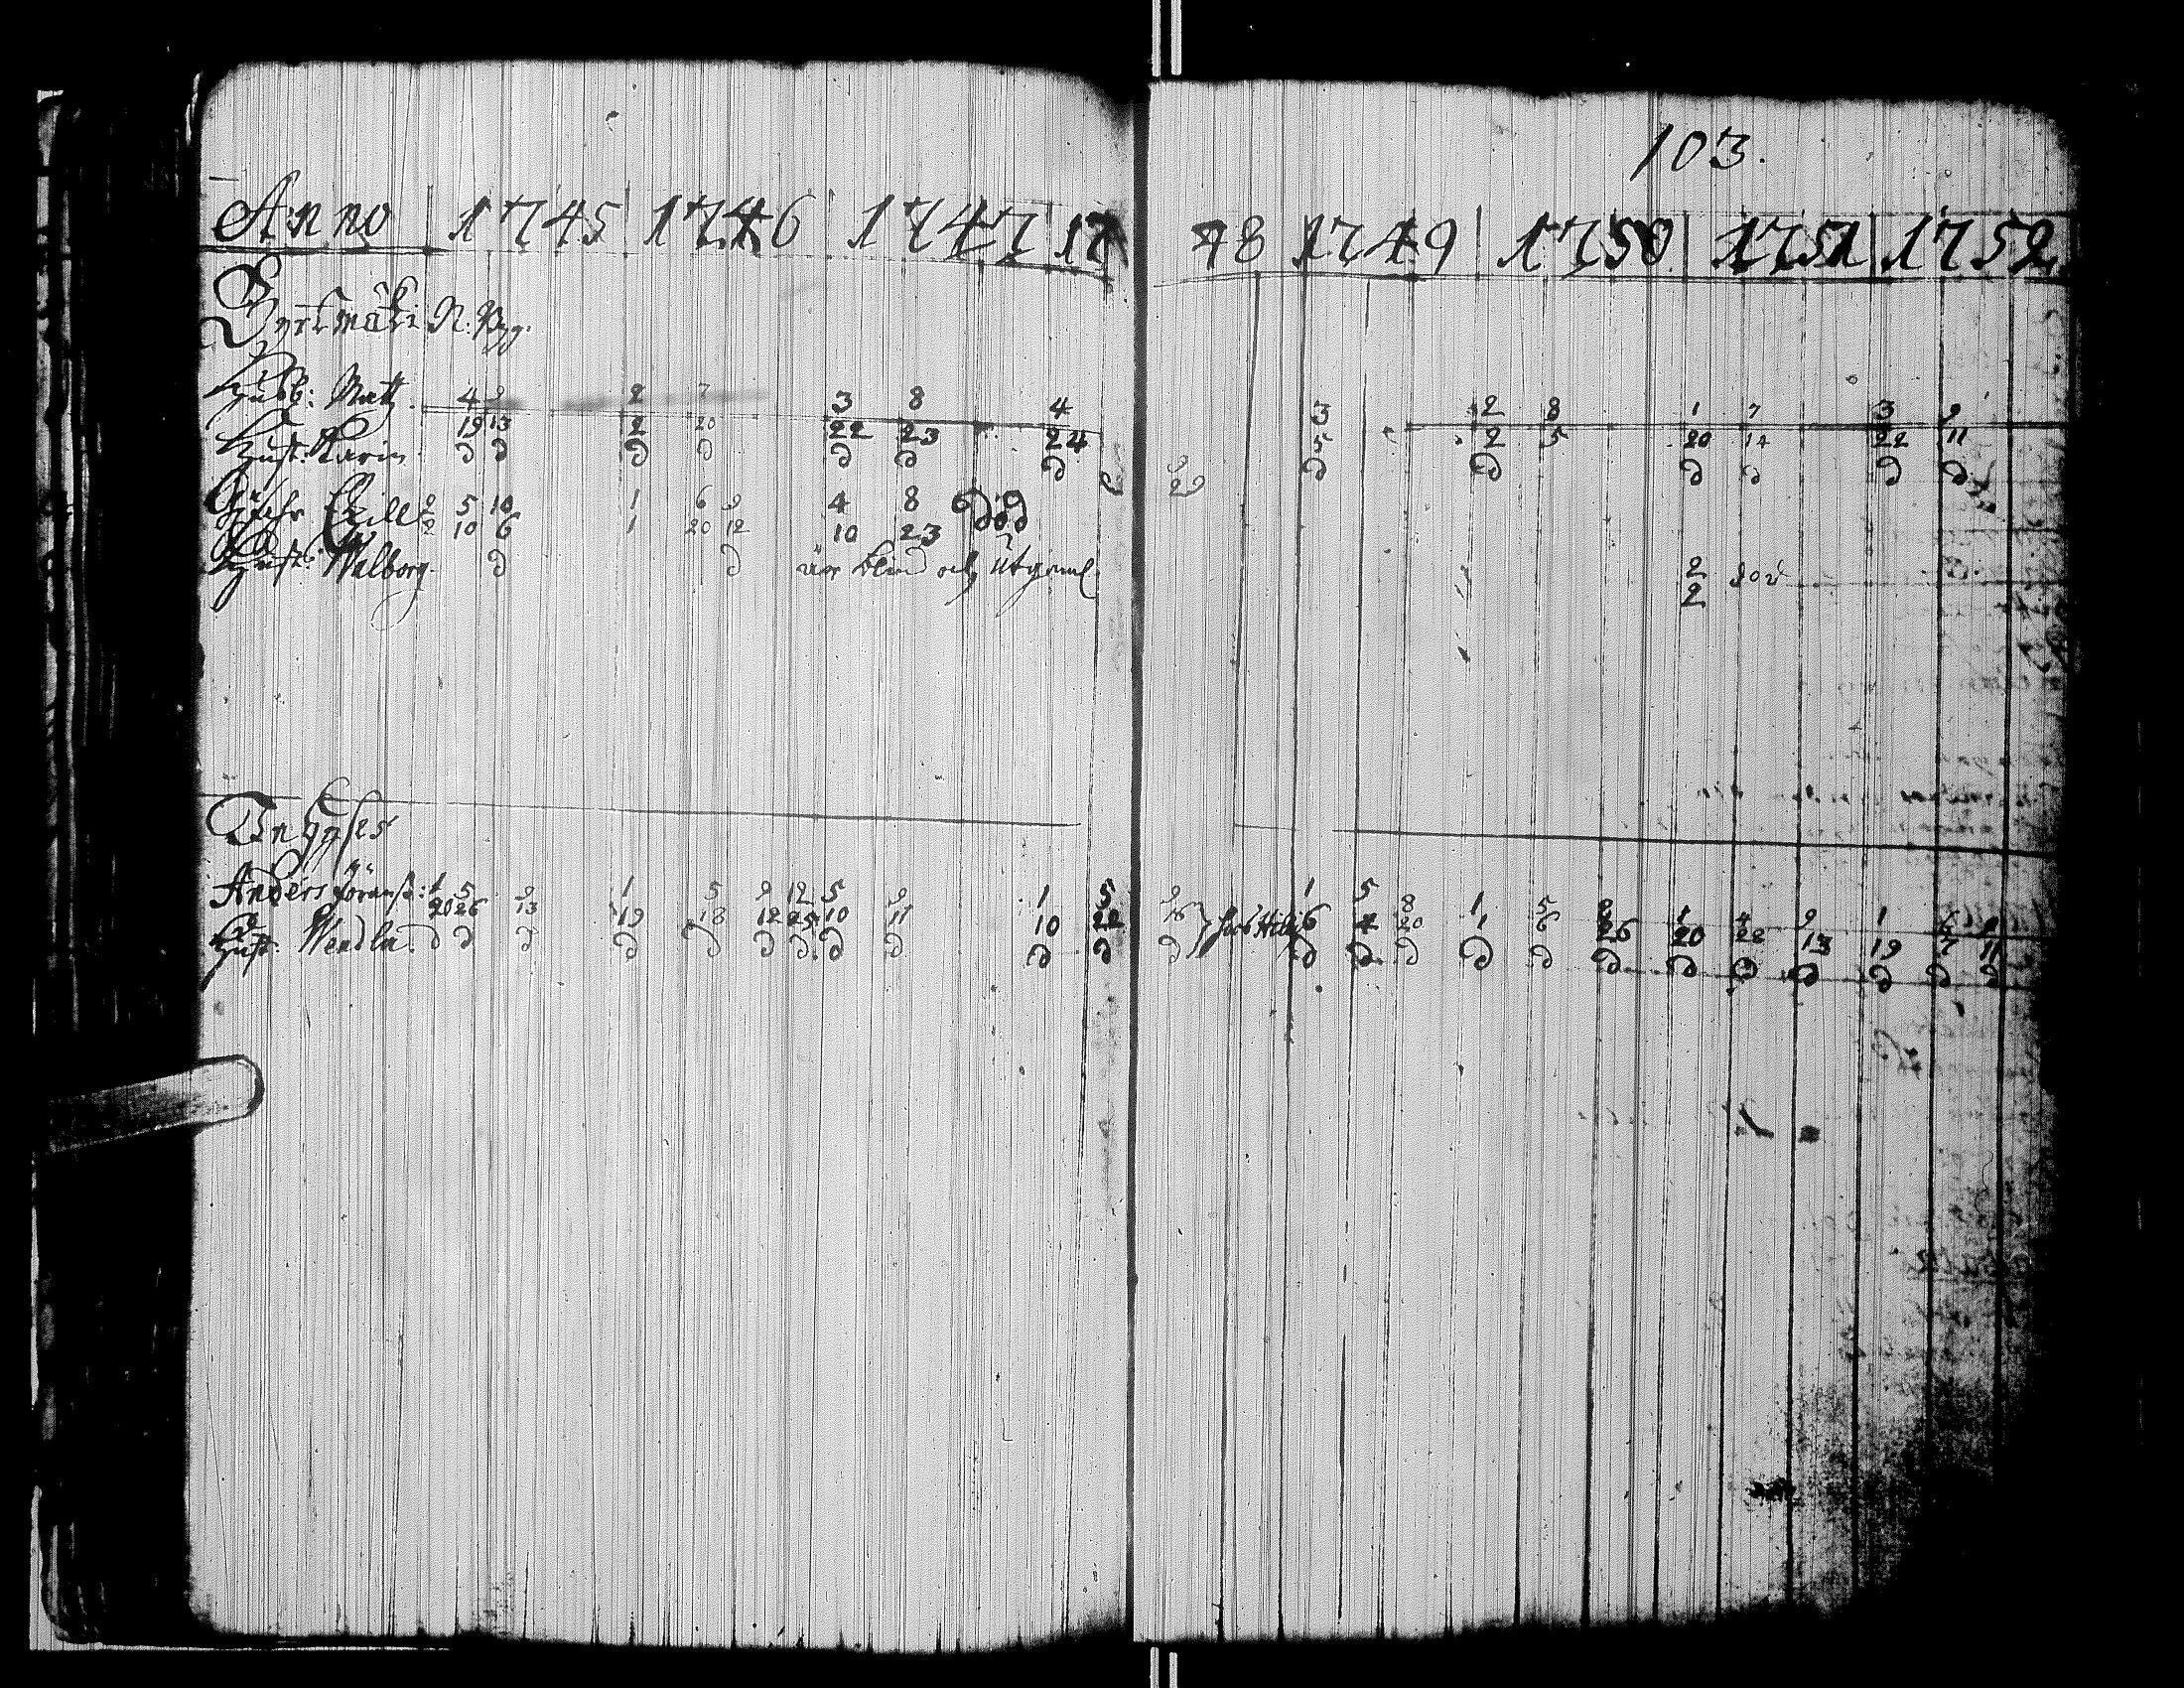 103.
Anno 1745 1746 1747 17 48 1749 1750 1751 1752
N. Byg.
Husb: Matz 4 9 2 7 3 8 4 3 2 8 1 7 3 9
19 13 2 20 22 23 24 5 2 5 20 14 22 11
Hust: Karin d d d d d d d d d d d d d
2 5 10 1 6 9 4 8 död
2 10 6 1 20 12 10 23
Hust: Walborg d d är blind och Utgaml 2 död
2
Anders Göranss: 1 5 9 1 5 9 12 5 9 1 5 9 1 5 8 1 5 8 1 4 9 1
20 26 13 19 18 12 25 10 11 10 22 26 6 4 20 1 6 26 20 22 13 19 7 11
Hust: Wendla d d d d d d d d d d d d d d d d d d d d d d d d